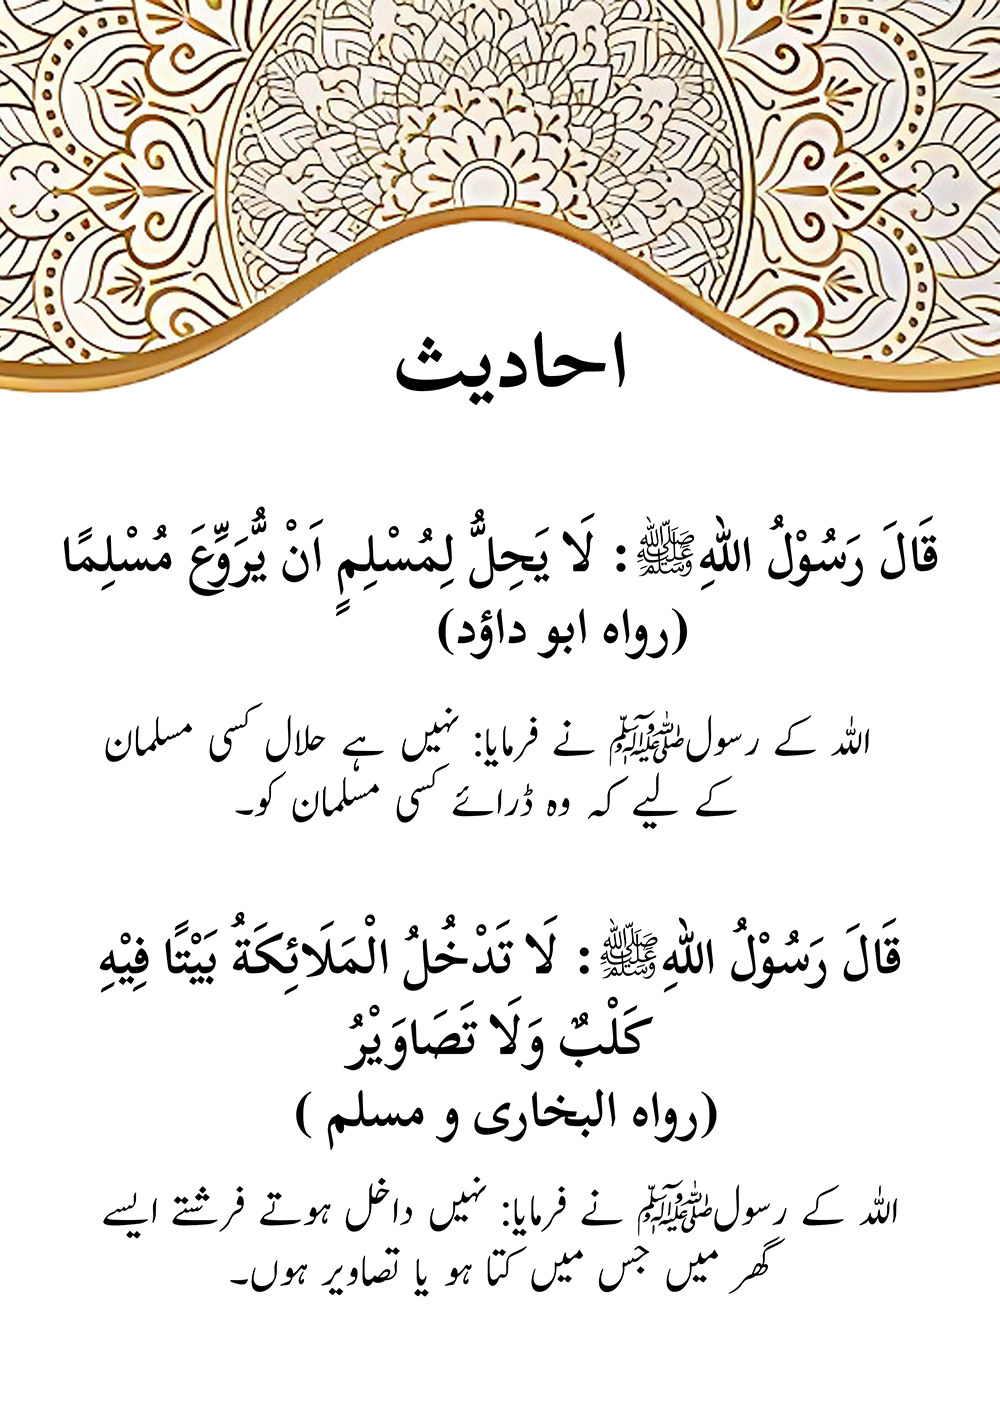 احادیث
قَالَ رَسُوْلُ اللهِﷺ: لَا يَحِلُّ لِمُسْلِمٍ اَنْ يُّرَوِّعَ مُسْلِمًا
(رواه ابو داؤد)
اللہ کے رسولﷺ نے فرمایا: نہیں ہے حلال کسی مسلمان
کے لیے کہ وہ ڈرائے کسی مسلمان کو۔
قَالَ رَسُوْلُ اللهِﷺ: لَا تَدْخُلُ الْمَلَائِكَةُ بَيْتًا فِيْهِ
كَلْبٌ وَلَا تَصَاوَيْرُ
(رواه البخاری و مسلم )
اللہ کے رسولﷺ نے فرمایا: نہیں داخل ہوتے فرشتے ایسے
گھر میں جس میں کتا ہو یا تصاویر ہوں۔